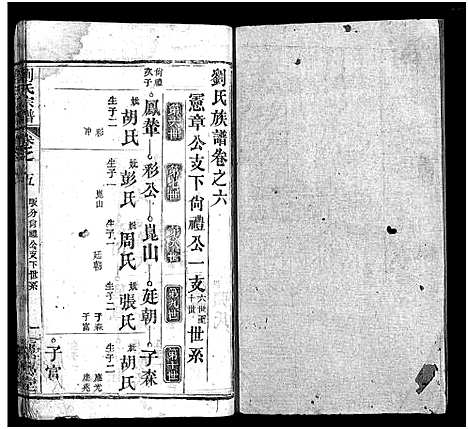 劉氏族譜卷之六
憲章公支下尙禮公一支六世至十世世系
第六世
第七世
第八世
第九世
第十世
尙禮次子
鳳華
彩公
崑山
廷朝
子森
娍胡氏
生子二
彩
娍彭氏
生子一
崑山
娍周氏
生子一
廷朝
娍張氏
生子二
子森
子富
娍胡氏
生子二
應光
應兆
子富
劉氏宗譜
卷之五
尙禮公支下世系